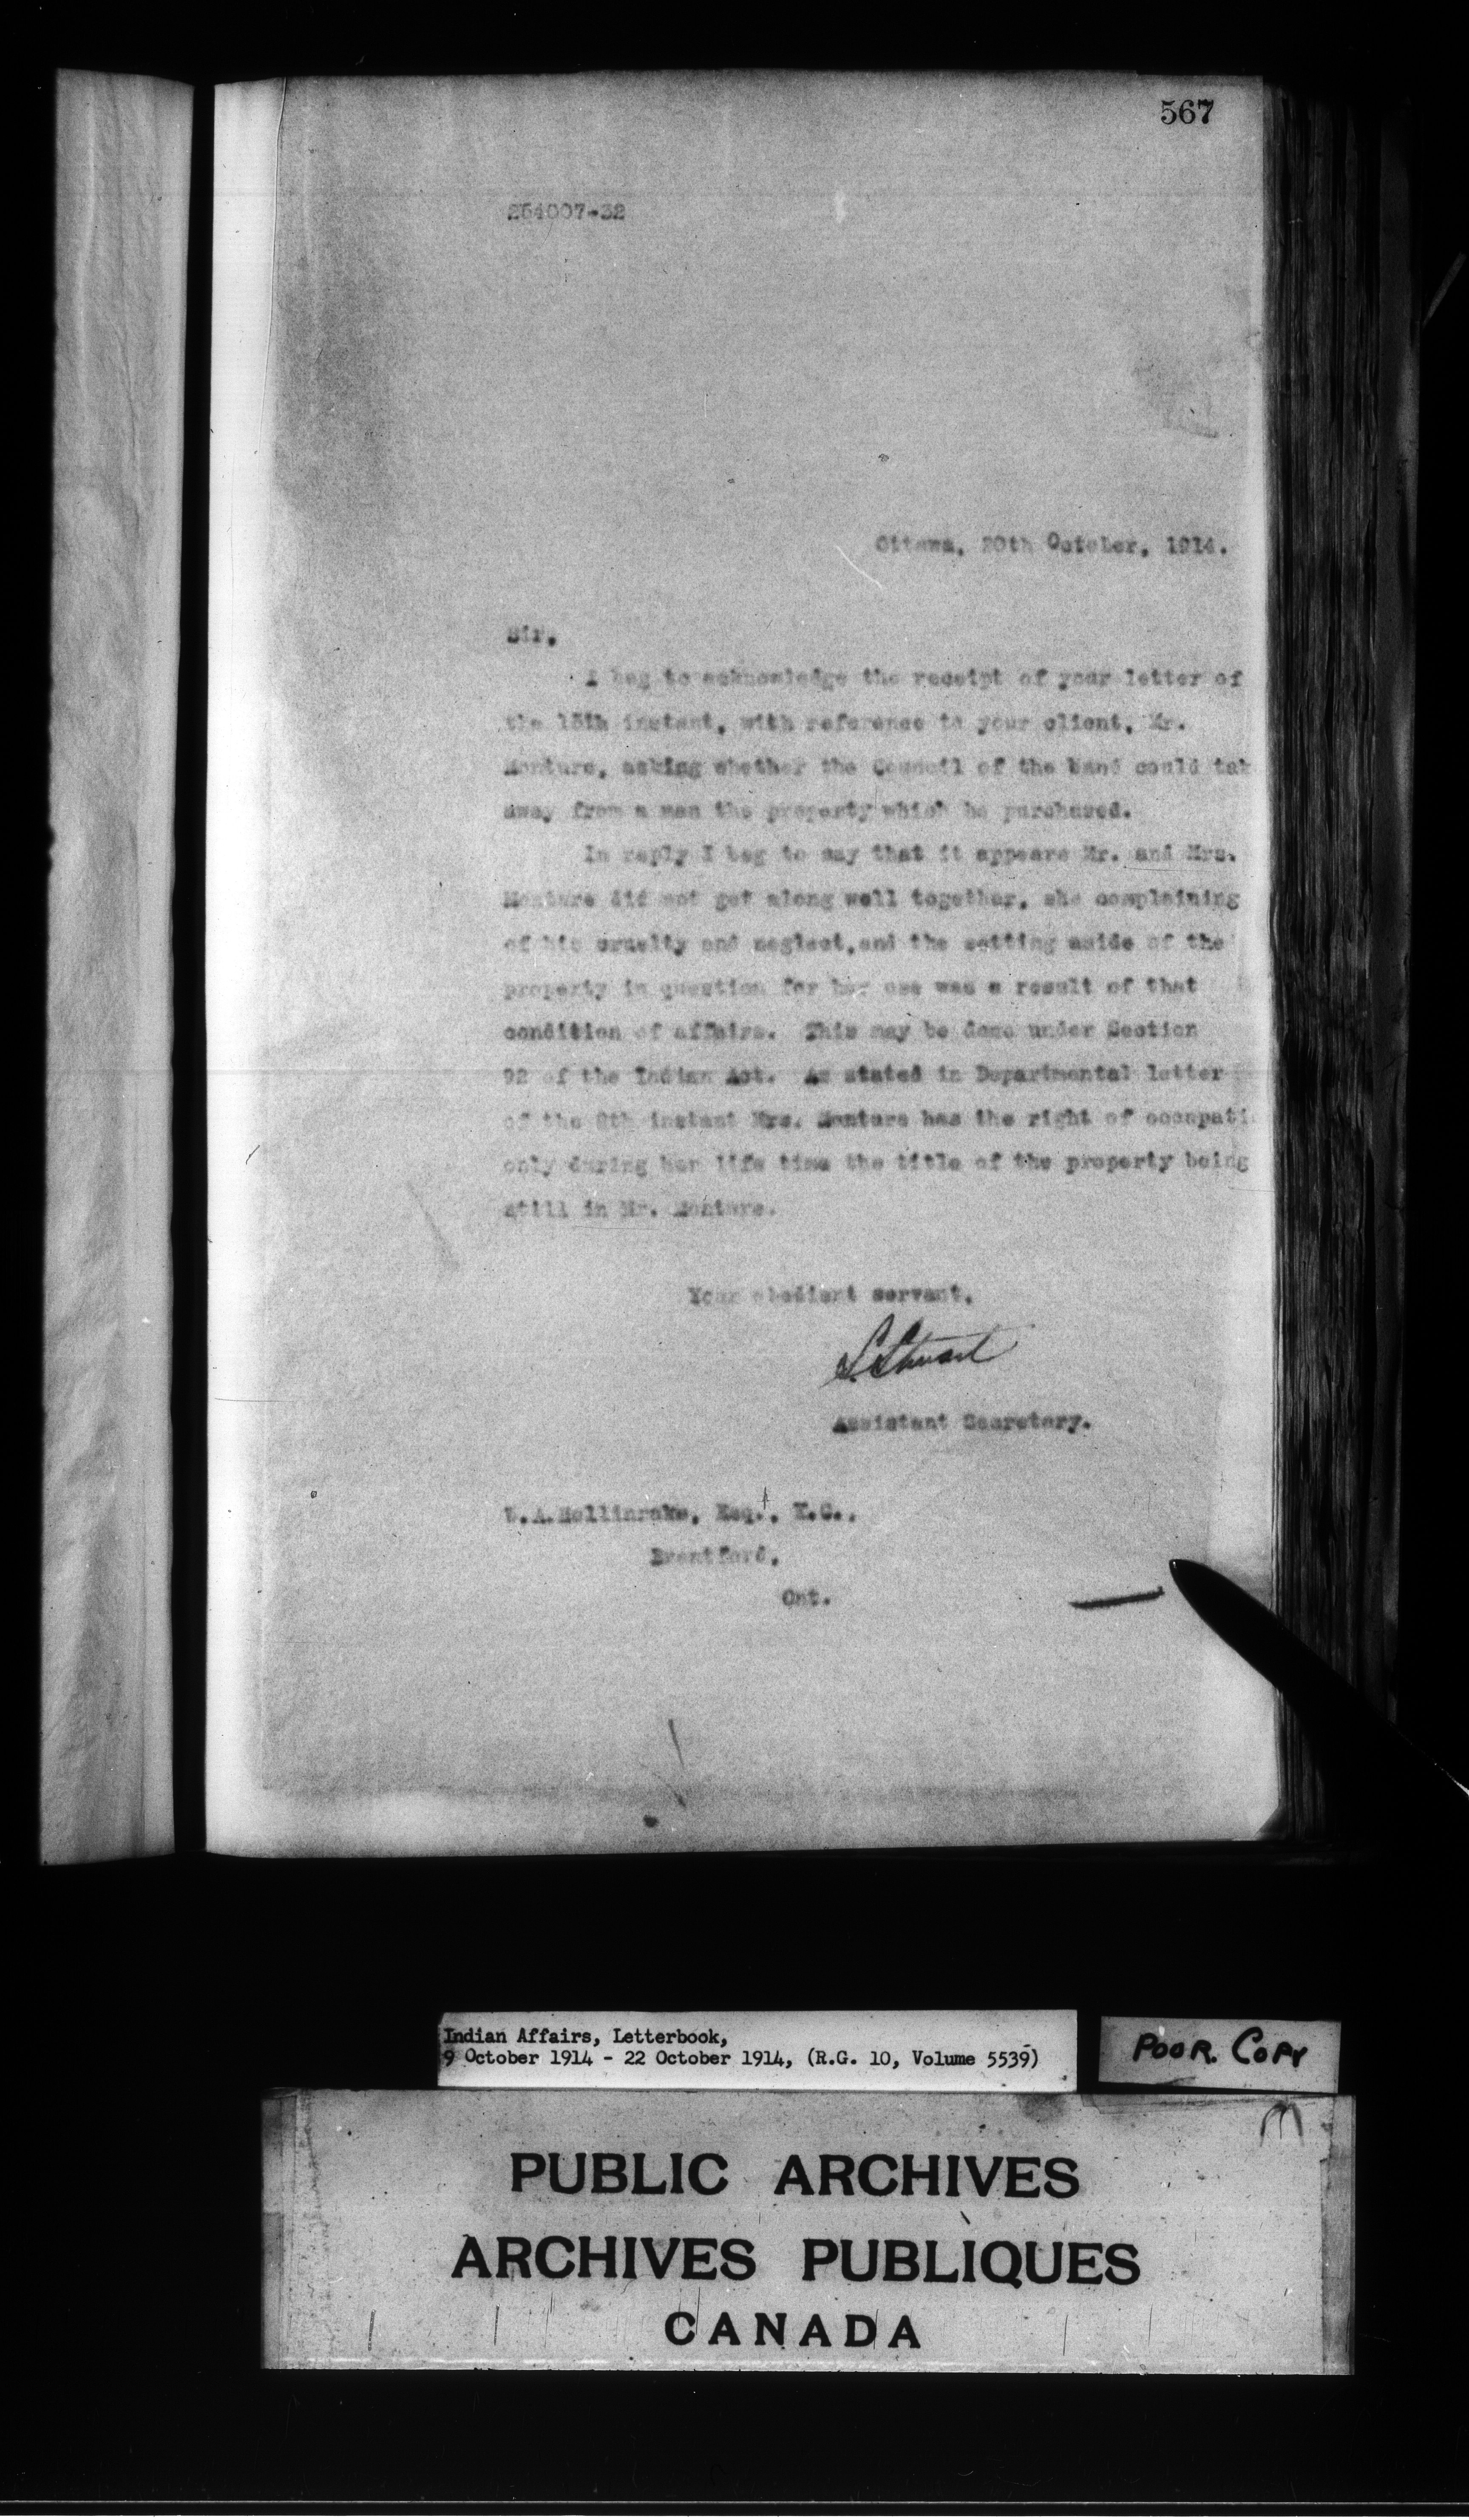 567
254007-32
Ottawa, 20th October, 1914.
Sir,
I beg to acknowledge the receipt of your letter of
the 15th instant, with reference to your client, Mr.
Monture, asking whether the Council of the Band could tak
away from a man the property which he purchased.
In reply I beg to say that it appears Mr. and Mrs.
Monture did not get along well together, she complaining
of his cruelty and neglect, and the setting aside of the
property in question for her use was a result of that
condition of affairs. This may be done under Section
92 of the Indian Act. As stated in Departmental letter
of the 8th instant Mrs. Monture has the right of occupati
only during her life time the title of the property being
still in Mr. Monture.
Your obedient servant,
S. Stewart
Assistant Secretary.
W.A.Hollinrake, Esq., K.C.,
Brantford,
Ont.
Indian Affairs, Letterbook,
9 October 1914 - 22 October 1914, (R.G. 10, Volume 5539)
POOR. COPY
PUBLIC ARCHIVES
ARCHIVES PUBLIQUES
CANADA